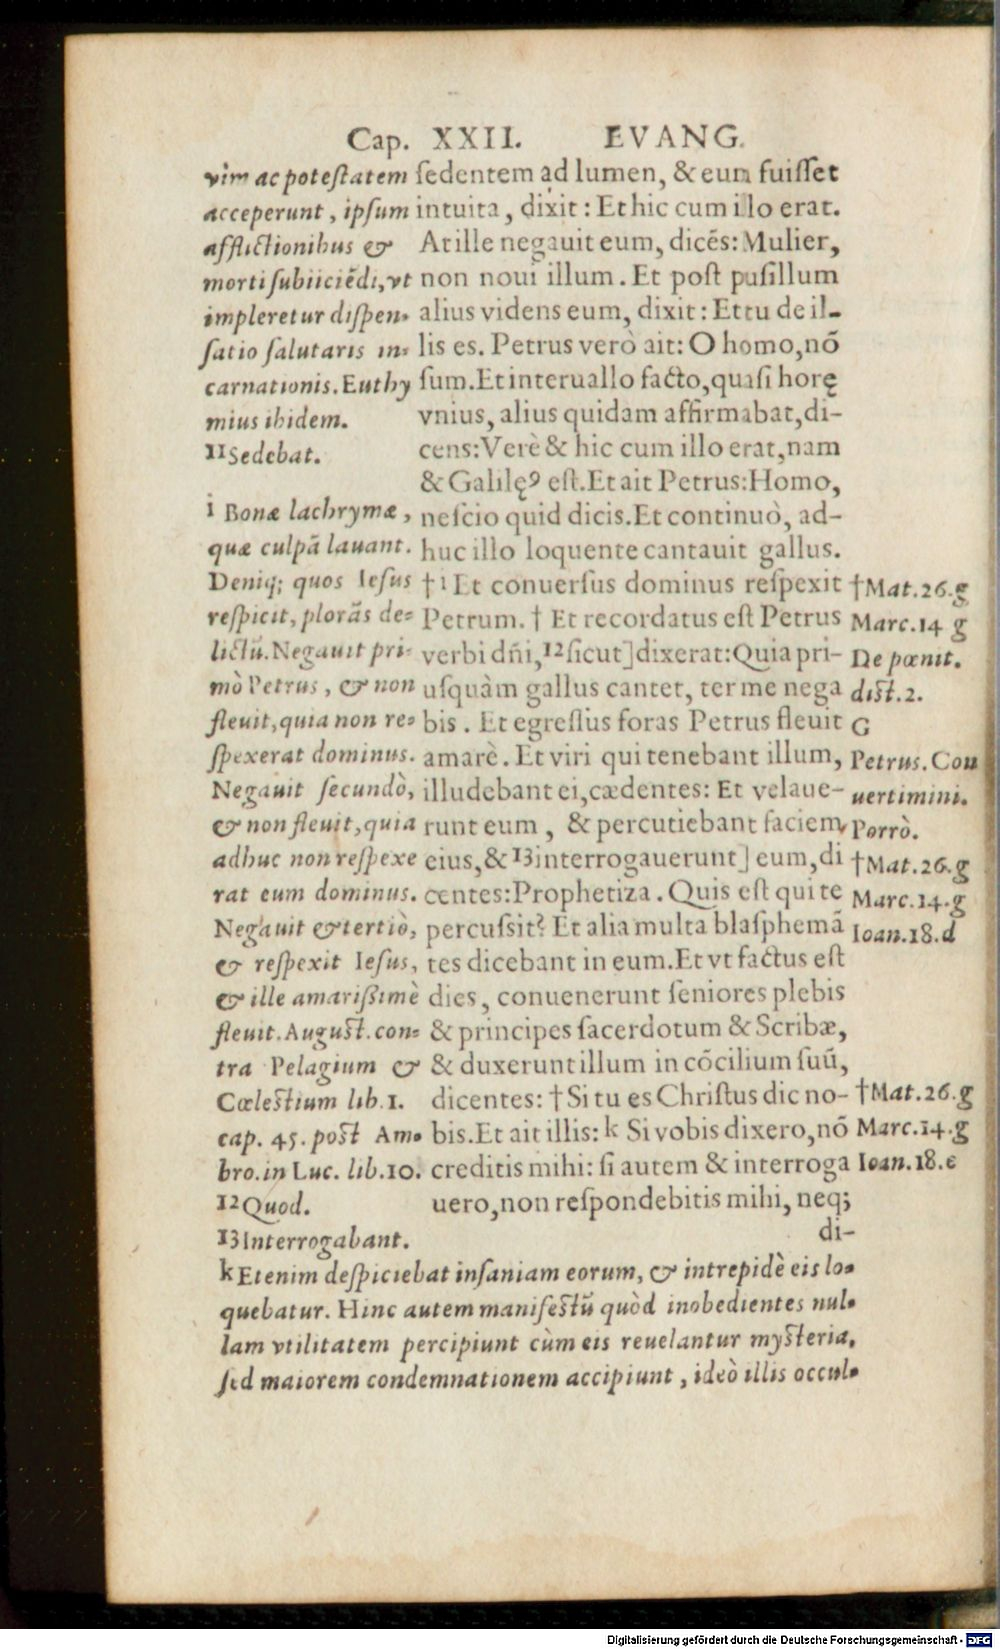 Cap. XXII. EVANG.
vim ac potestatem
acceperunt, ipsum
afflictionibus &
morti subiiciẽdi, vt
impleretur dispen-
satio salutaris in-
carnationis. Euthy
mius ibidem.
11 Sedebat.
i Bonæ lachrymæ,
quæ culpã lauant.
Deniq; quos Iesus
respicit, plorãs de-
lictũ. Negauit pri-
mò Petrus, & non
fleuit, quia non re-
spexerat dominus.
Negauit secundò,
& non fleuit, quia
adhuc non respexe
rat eum dominus.
Negauit & tertiò,
& respexit Iesus,
& ille amarissimè
fleuit. August. con-
tra Pelagium &
Cœlestium lib. 1.
cap. 45. post Am-
bro. in Luc. lib. 10.
12 Quod.
13 Interrogabant.
sedentem ad lumen, & eum fuisset
intuita, dixit: Et hic cum illo erat.
At ille negauit eum, dicẽs: Mulier,
non noui illum. Et post pusillum
alius videns eum, dixit: Et tu de il-
lis es. Petrus verò ait: O homo, nõ
sum. Et interuallo facto, quasi horę
vnius, alius quidam affirmabat, di-
cens: Verè & hic cum illo erat, nam
& Galilęꝰ est. Et ait Petrus: Homo,
nescio quid dicis. Et continuò, ad-
huc illo loquente cantauit gallus.
† i Et conuersus dominus respexit
Petrum. † Et recordatus est Petrus
verbi dñi, 12 sicut] dixerat: Quia pri-
usquàm gallus cantet, ter me nega
bis. Et egressus foras Petrus fleuit
amarè. Et viri qui tenebant illum,
illudebant ei, cædentes: Et velaue-
runt eum, & percutiebant faciem
eius, & 13 interrogauerunt] eum, di
centes: Prophetiza. Quis est qui te
percussit? Et alia multa blasphemã
tes dicebant in eum. Et vt factus est
dies, conuenerunt seniores plebis
& principes sacerdotum & Scribæ,
& duxerunt illum in cõcilium suũ,
dicentes: † Si tu es Christus dic no-
bis. Et ait illis: k Si vobis dixero, nõ
creditis mihi: si autem & interroga
uero, non respondebitis mihi, neq;
di-
† Mat. 26. g
Marc. 14 g
De pœnit.
dist. 2.
G
Petrus. Con
uertimini.
Porrò.
† Mat. 26. g
Marc. 14. g
Ioan. 18. d
† Mat. 26. g
Marc. 14. g
Ioan. 18. e
k Etenim despiciebat insaniam eorum, & intrepidè eis lo-
quebatur. Hinc autem manifestũ quòd inobedientes nul-
lam vtilitatem percipiunt cùm eis reuelantur mysteria,
sed maiorem condemnationem accipiunt, ideò illis occul-
Digitalisierung gefördert durch die Deutsche Forschungsgemeinschaft - DFG